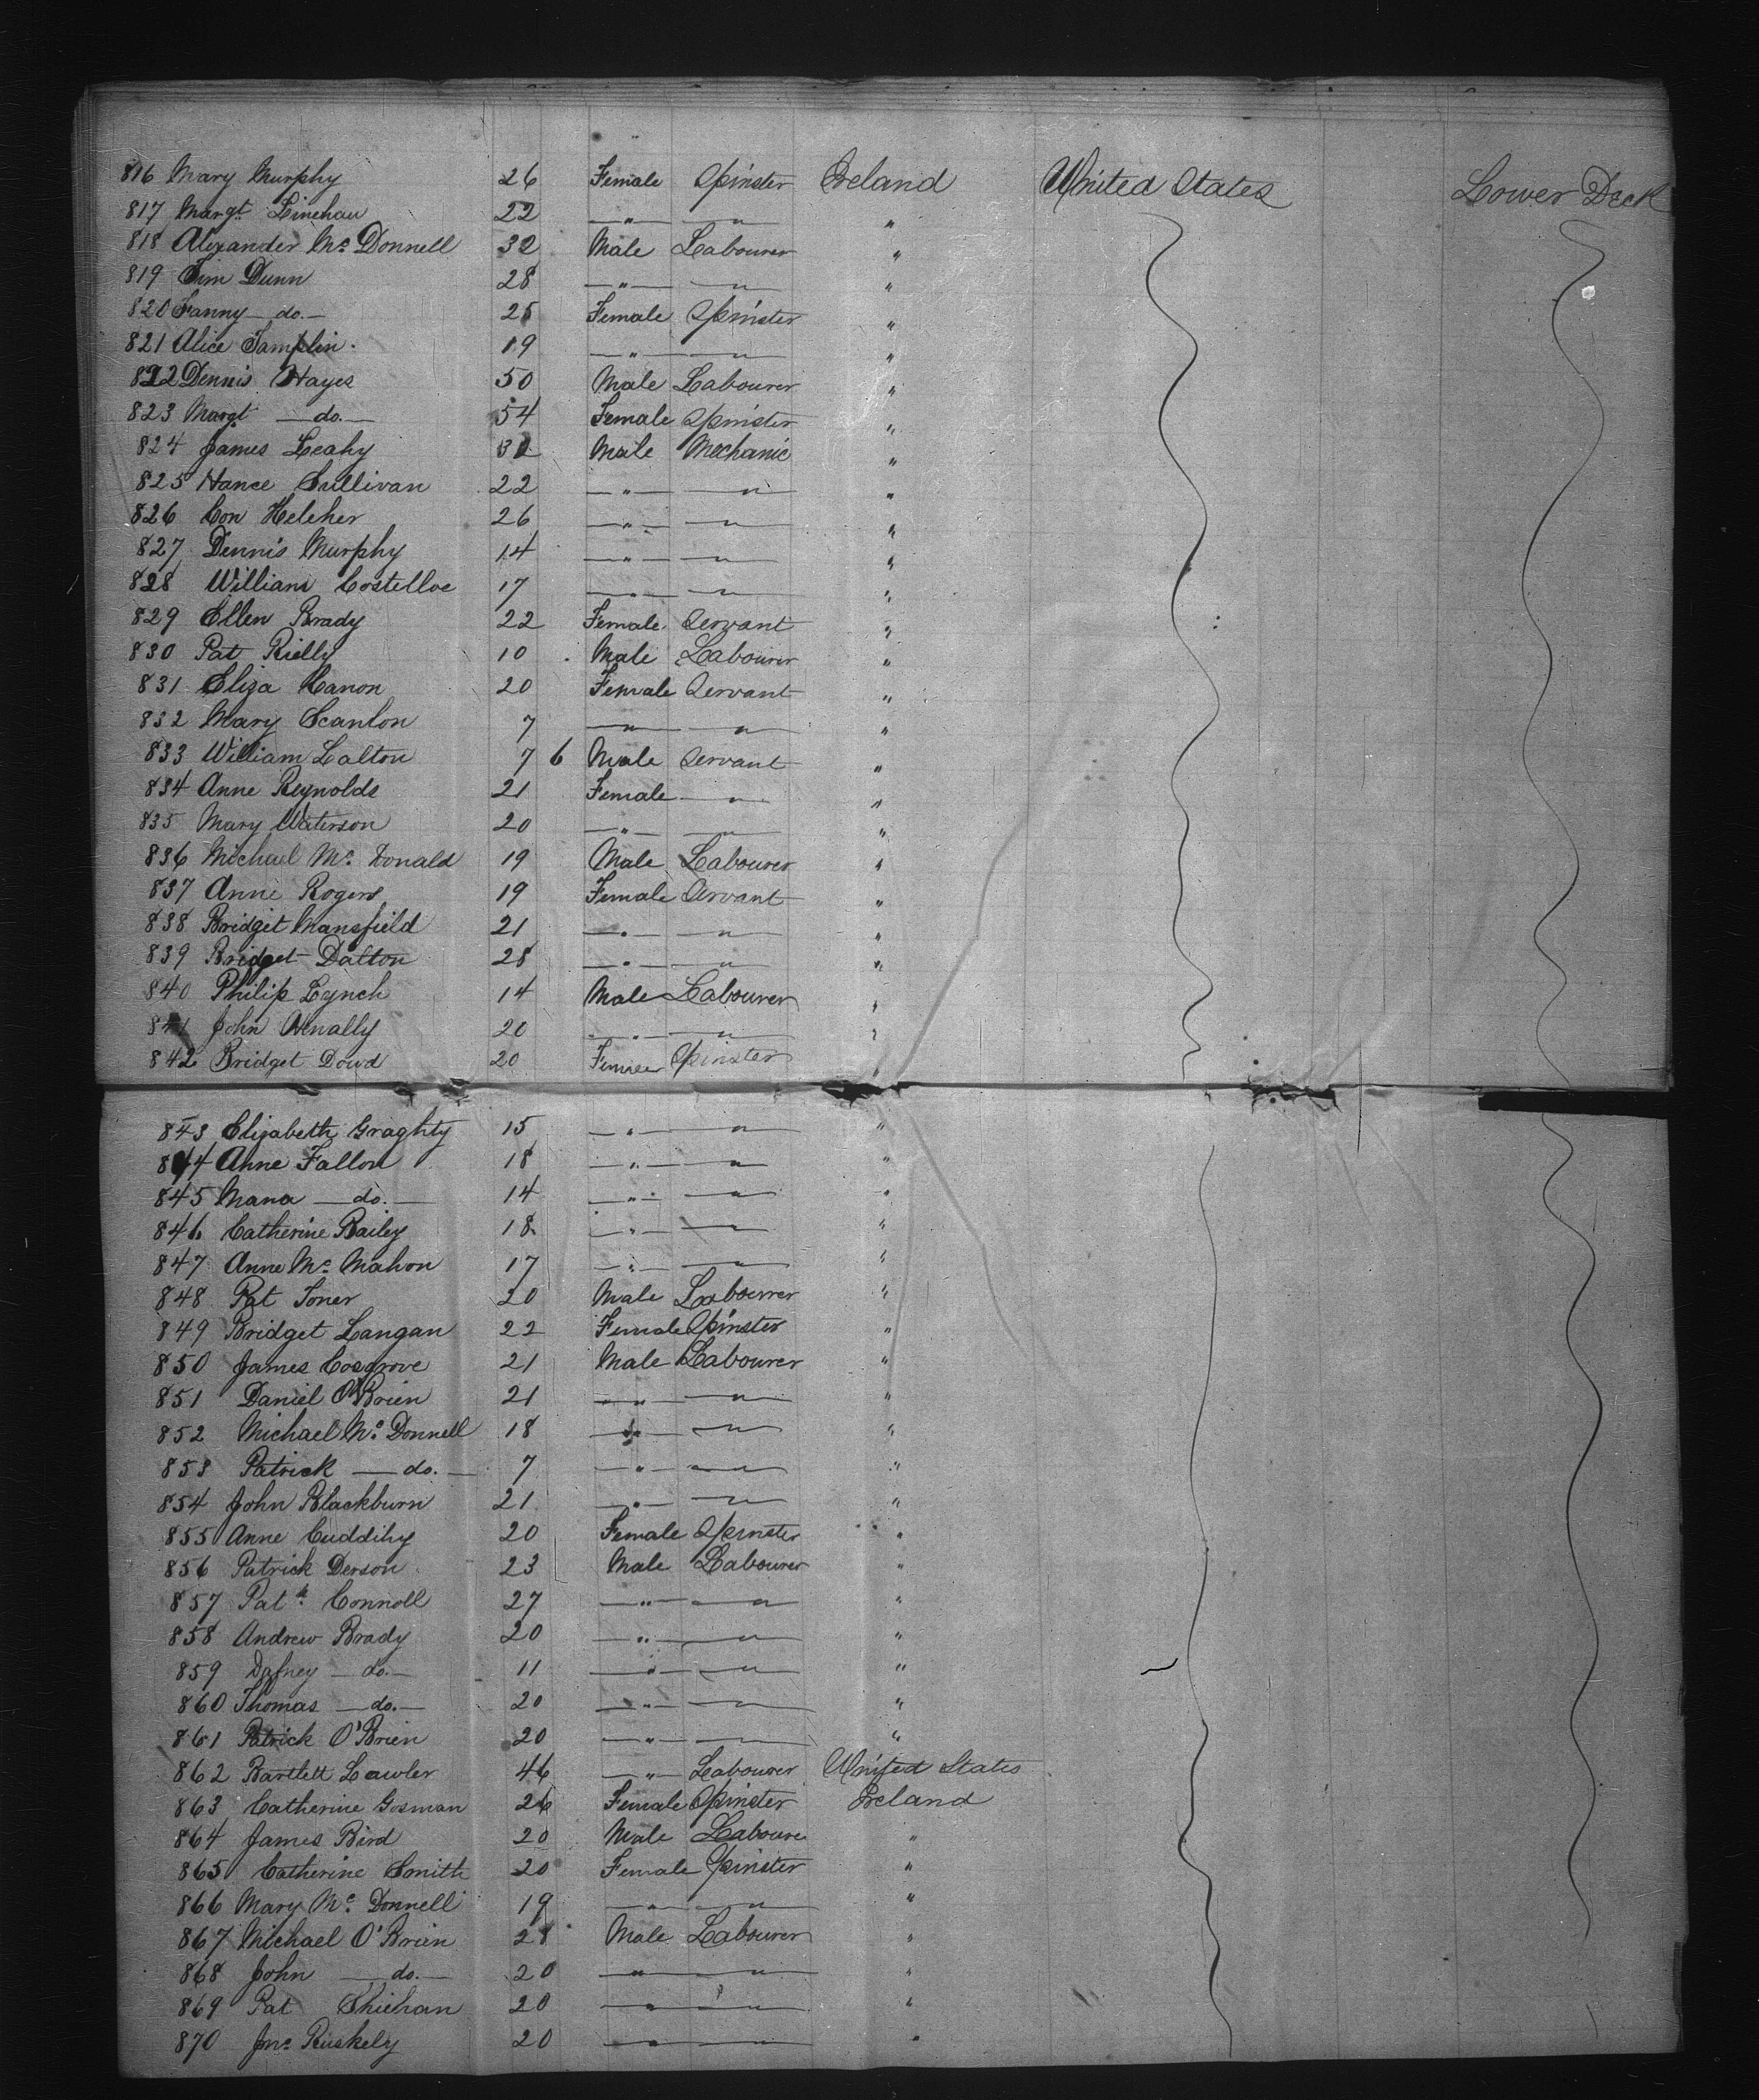 816 Mary Murphy 26 Female Spinster Ireland United States Lower Deck
817 Margt. Linehan 22 —"— —"— "
818 Alexander Mc. Donnell 32 Male Labourer "
819 Tim Dunn 28 —"— —"— "
820 Fanny —do.— 25 Female Spinster "
821 Alice Tamplin. 19 —"— —"— "
822 Dennis Hayes 50 Male Labourer "
823 Margt —do.— 54 Female Spinster "
824 James Leahy 32 Male Mechanic "
825 Hance Sullivan 22 —"— —"— "
826 Con Heleher 26 —"— —"— "
827 Dennis Murphy 14 —"— —"— "
828 William Costelloe 17 —"— —"— "
829 Ellen Brady 22 Female Servant "
830 Pat Rielly 10 Male Labourer "
831 Eliza Canon 20 Female Servant "
832 Mary Scanlon 7 —"— —"— "
833 William Lalton 7 6 Male Servant "
834 Anne Reynolds 21 Female —"— "
835 Mary Waterson 20 —"— —"— "
836 Michael Mc. Donald 19 Male Labourer "
837 Anne Rogers 19 Female Servant "
838 Bridget Mansfield 21 —"— —"— "
839 Bridget Dalton 28 —"— —"— "
840 Philip Lynch 14 Male Labourer "
841 John 20 —"— —"— "
842 Bridget Dowd 20 Female Spinster "
843 Elizabeth Graghty 15 —"— —"— "
844 Anne Fallon 18 —"— —"— "
845 Mana —do.— 14 —"— —"— "
846 Catherine Bailey 18 —"— —"— "
847 Anne Mc. Mahon 17 —"— —"— "
848 Pat Toner 20 Male Labourer "
849 Bridget Langan 22 Female Spinster "
850 James Cosgrove 21 Male Labourer "
851 Daniel O'Brien 21 —"— —"— "
852 Michael Mc. Donnell 18 —"— —"— "
853 Patrick —do.— 7 —"— —"— "
854 John Blackburn 21 —"— —"— "
855 Anne Cuddihy 20 Female Spinster "
856 Patrick Derson 23 Male Labourer "
857 Patk. Connoll 27 —"— —"— "
858 Andrew Brady 20 —"— —"— "
859 Dafney —do.— 11 —"— —"— "
860 Thomas —do.— 20 —"— —"— "
861 Patrick O'Brien 20 —"— —"— "
862 Bartlett Lawler 46 —"— Labourer United States
863 Catherine Gosman 26 Female Spinster Ireland
864 James Bird 20 Male Laboure "
865 Catherine Smith 20 Female Spinster "
866 Mary Mc. Donnell 19 —"— —"— "
867 Michael O'Brien 28 Male Labourer "
868 John —do.— 20 —"— —"— "
869 Pat Shiehan 20 —"— —"— "
870 Jno. Ruskely 20 —"— —"— "